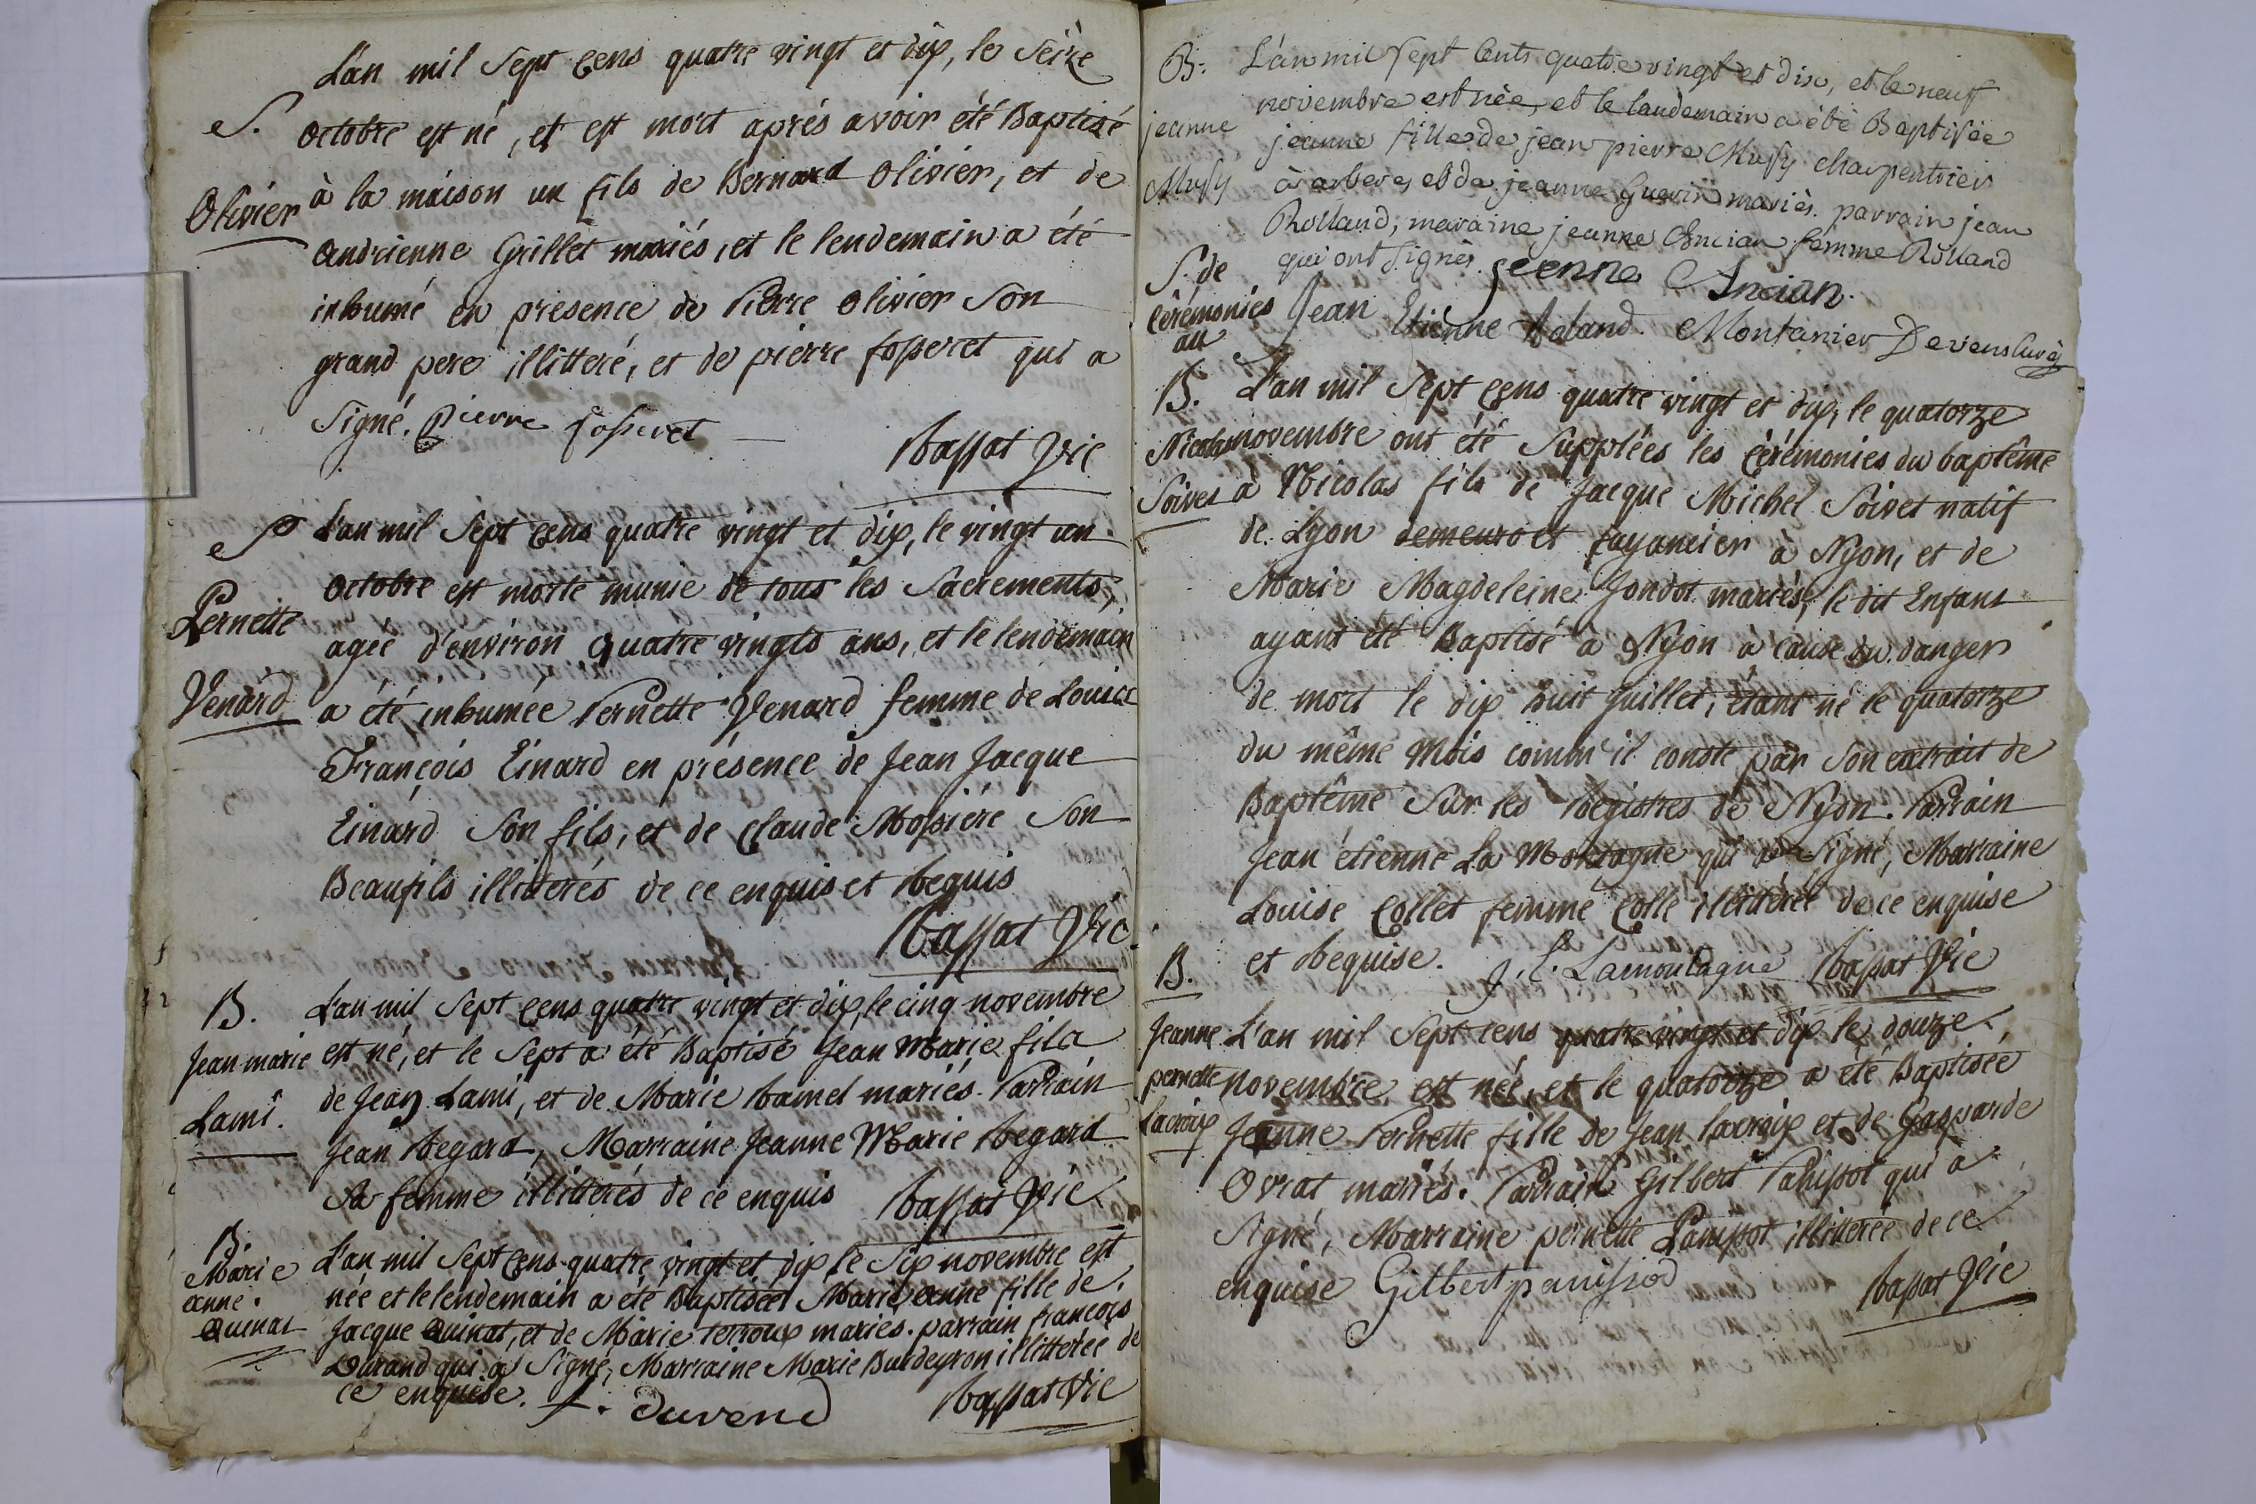 L'an mil Sept Cens quatre vingt et dix, le Seize
S.
octobre est né, et est mort aprés avoir été Baptizé
Olivier
à la maison un fils de Bernard Olivier, et de
Andrienne Grillet mariés, et le lendemain a été
inhumé en présence de Pierre Olivier Son
grand pere illitteré, et de pierre fosseret qui a
Signé. Pierre fosseret
Rassat Vic
S
L'an mil Sept Cens quatre vingt et dix, le vingt un
octobre est morte munie de tous les Sacrements,
Pernette
agée d'environ quatre vingts ans, et le lendemain
Venard
a été inhumée Pernette Venard femme de Louis
François Einard en présence de Jean Jacque
Einard Son fils, et de Claude Mossiére Son
Beaufils illitterés de ce enquis et Requis
Rassat Vic.
B.
L'an mil Sept Cens quatre vingt et dix, le cinq novembre
Jean marie
est né, et le Sept a été Baptisé Jean Marie fils
Lami.
de Jean Lami, et de Marie Ramel mariés. Parrain
Jean Regard, Marraine Jeanne Marie Regard
Sa femme illitterés de ce enquis Rassat Vic.
B.
Marie
anne.
Quinat
L'an mil Sept Cens quatre vingt et dix, le Six novembre est
née et le lendemain a été Baptisée Marie anne fille de
Jacque Quinat, et de Marie terroux mariés. parrain francois
Durand qui a Signé, Marraine Marie Burdeyron illitterée de
ce enquise. f. durend Rassat Vic
B.
L'an mil Sept Cents quatre vingt et dix, et le neuf
novembre est née, et le landemain a été Baptisée
jeanne
jeanne fille de jean pierre Musy charpentier
Musy
à arberes et de jeanne Guerin mariés. parrain jean
Rolland, maraine jeanne Ancian femme Rolland
qui ont Signés. jeenne Ancian.
S. de
Cérémonies
au
Jean Etienne Roland. Montanier Devens Curé
B.
L'an mil Sept Cens quatre vingt et dix, le quatorze
Nicolas
novembre ont été Supplées les Cérémonies du baptême
Soivet
à Nicolas fils de Jacque Michel Soivet natif
de Lyon demeuro et fayancier à Nyon, et de
Marie Magdeleine Jondot mariés, le dit Enfant
ayant été Baptisé à Nyon à cause du danger
de mort le dix huit Juillet, étant né le quatorze
du même Mois comm'il conste par Son extrait de
Baptême Sur les Registres de Nyon. Parrain
Jean étienne La Montagne qui a Signé, Marraine
Louise Collet femme Colle illitterée de ce enquise
et Requise. J. E. Lamontagne Rassat Vic
B.
Jeanne
pernette
Lacroix
L'an mil Sept cens quatre vingt et dix le douze
novembre est née, et le quatorze a été Baptisée
Jeanne Pernette fille de Jean lacroix et de Gasparde
Ovrat mariés. Parrain Gilbert Panissot qui a
Signé, Marraine pernette Panissot illitterée de ce
enquise Gilbert panissod
Rassat Vic